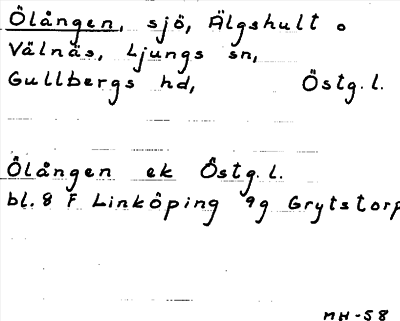 Ölången, sjö, Älgshult o
Välnäs, Ljungs sn,
Gullbergs hd, Östg.l.
Ölången ek Östg.l.
bl. 8 F Linköping 9g Grytstorp
MH-58